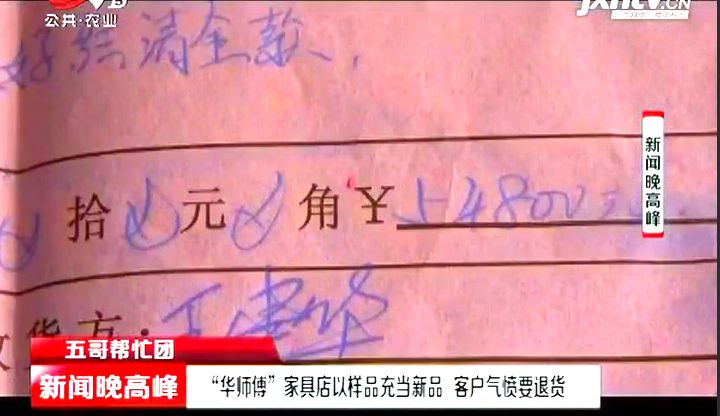 公共·农业
jxntv.cn
清全款,
新闻晚高峰
拾 元 角 ¥ 54800元
收货方:
五哥帮忙团
新闻晚高峰
“华师傅”家具店以样品充当新品 客户气愤要退货